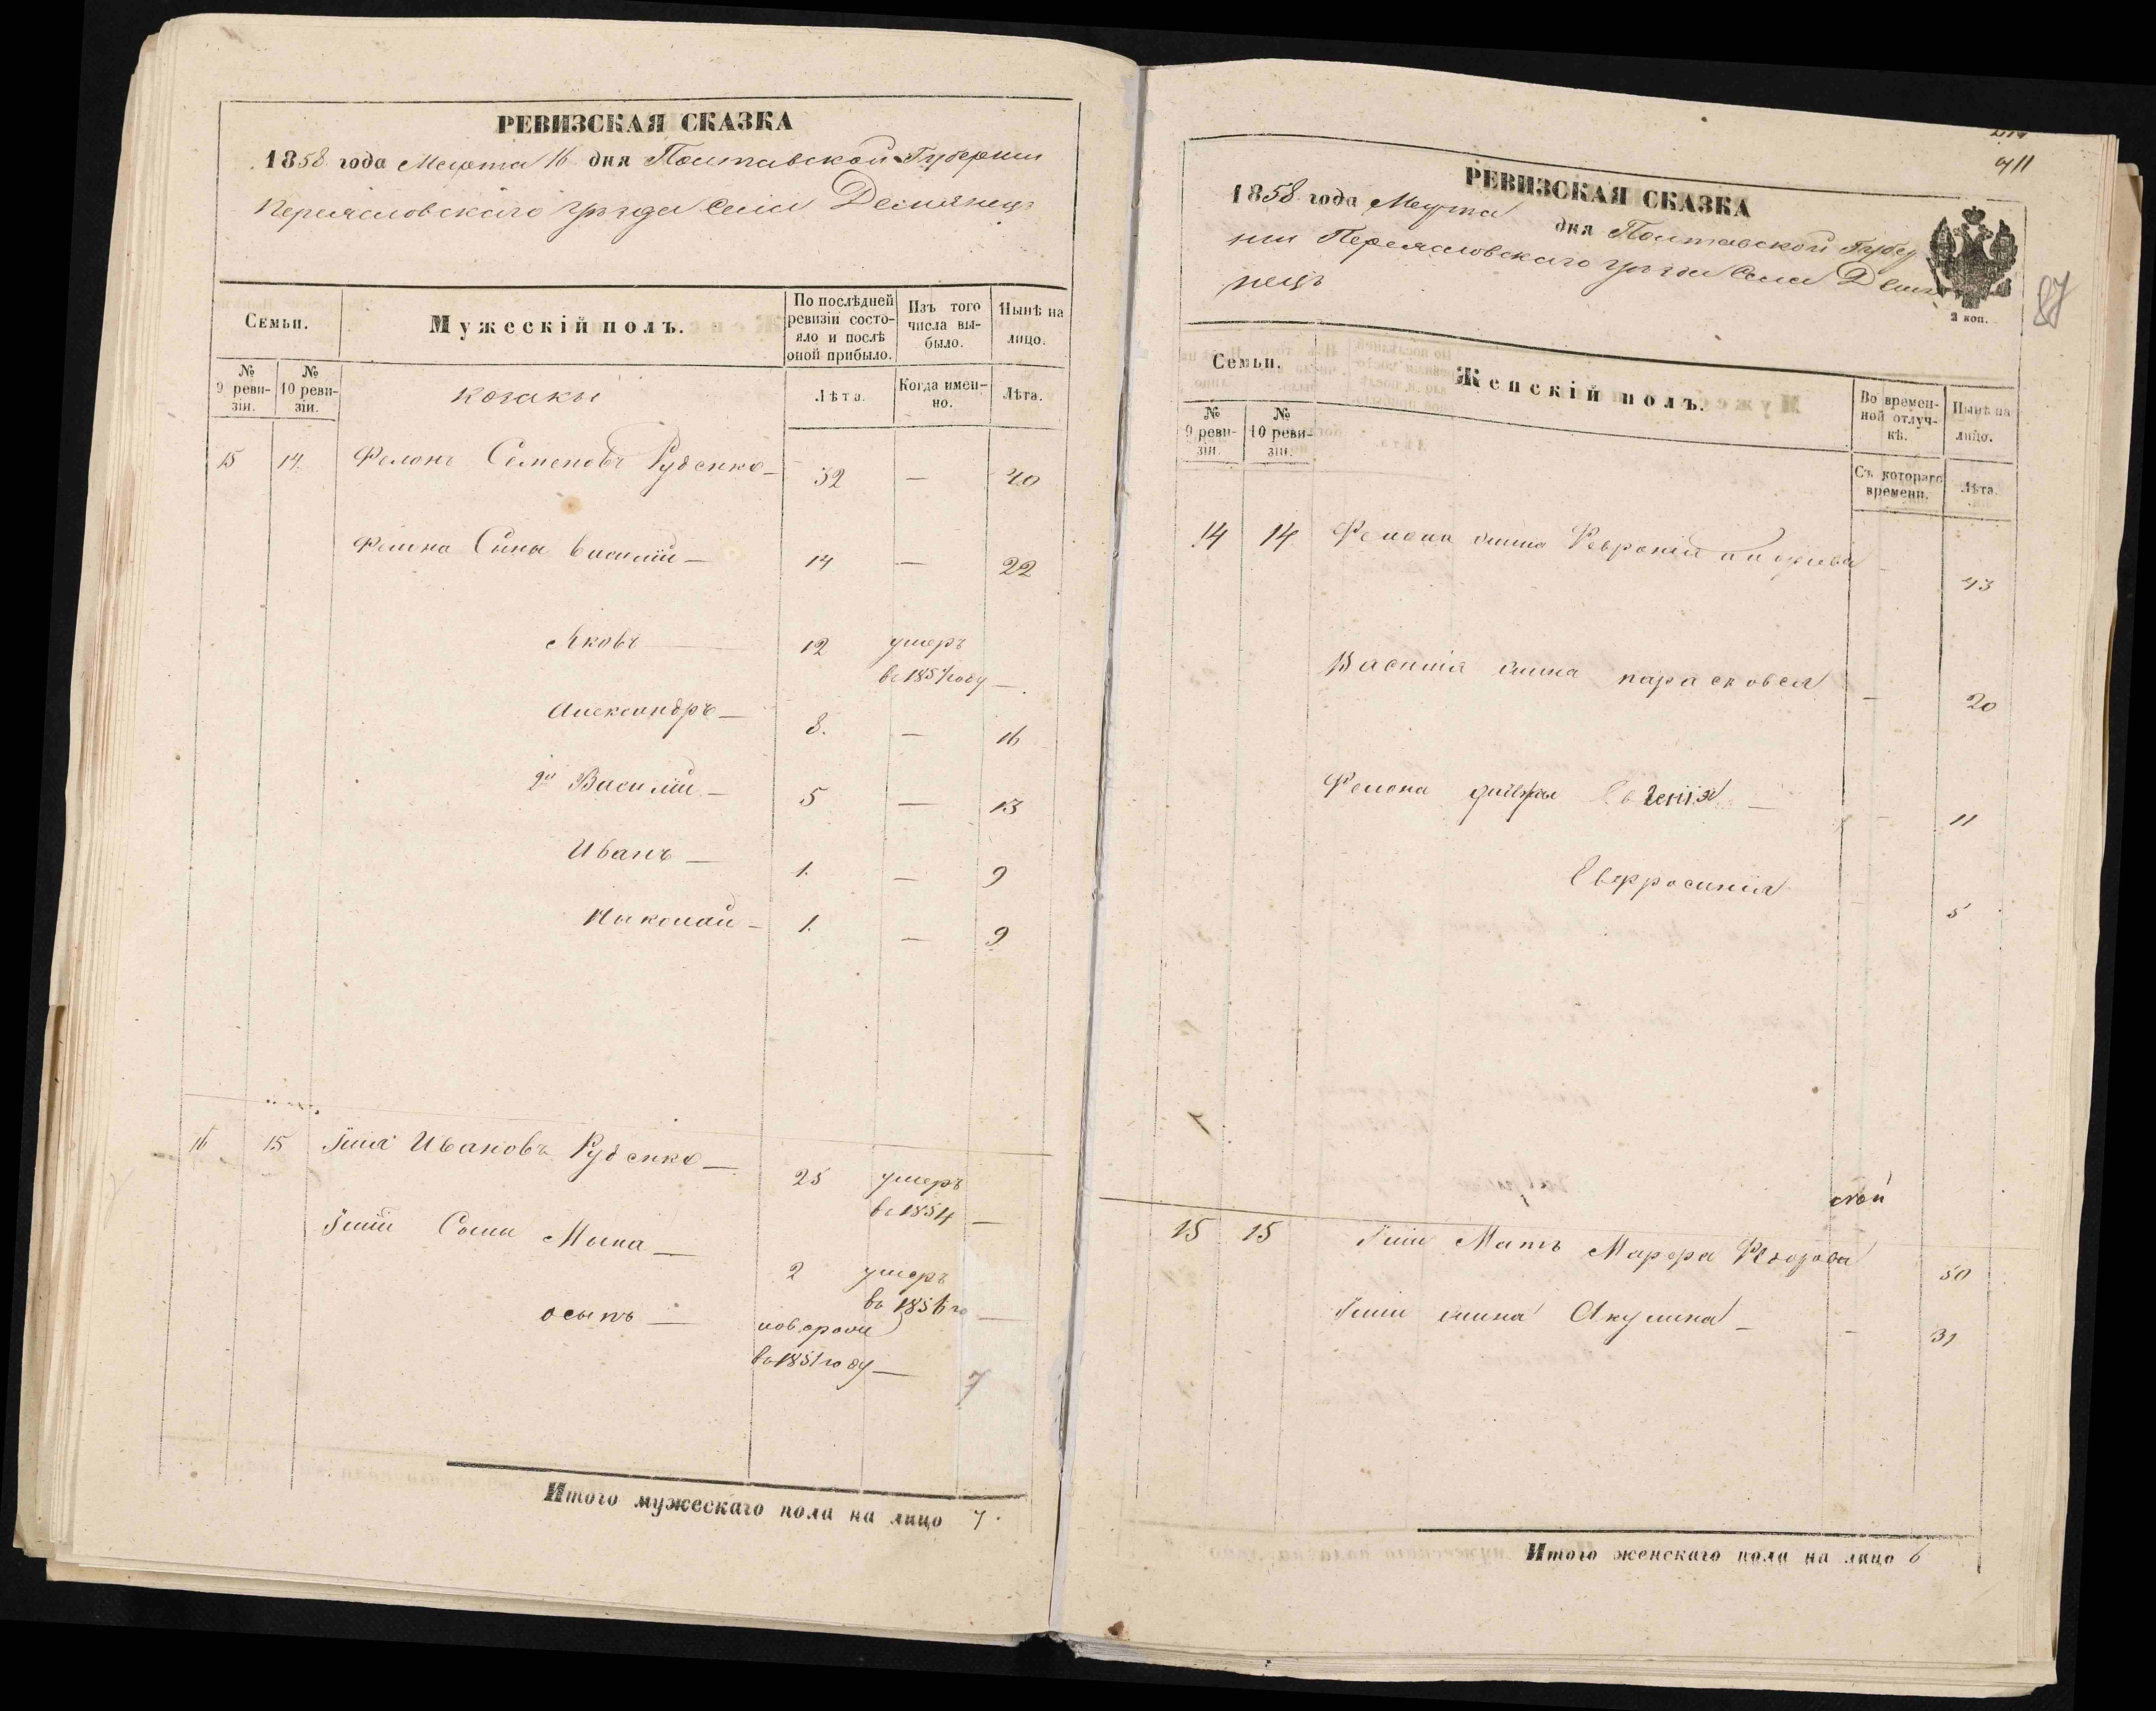 РЕВИЗСКАЯ СКАЗКА
1858 года Марта 16 дня Полтавской Губернии
Переяславского уезда Села Демянец
Семьи.
Мужескій полъ.
По послѣдней ревизіи состояло и послѣ оной прибыло.
Изъ того числа выбыло.
Нынѣ на лицо.
№ 9 ревизіи.
№ 10 ревизіи.
Козаки
Лѣта.
Когда именно.
Лѣта.
15 14. Филонъ Семеновъ Рубенко 32 — 40
Филона Сыны Василий — 14 — 22
Яковъ — 12 умеръ
въ 1857 году —
Александръ — 8. — 16
2й Василий — 5 — 13
Иванъ — 1. — 9
Николай — 1. — 9
16 15 Илия Ивановъ Рубенко — 25 умеръ
въ 1854 —
Илии Сыны Мина — 2 умеръ
въ 1856 го —
осыпъ —
въ 1851 году —
7
Итого мужескаго пола на лицо 7.
411
РЕВИЗСКАЯ СКАЗКА
1858 года Марта дня Полтавской Губер
нии Переяславского уезда Села Демя
нецъ
2 коп.
87
Семьи.
Женскій полъ.
Во временной отлучкѣ.
Нынѣ на лицо.
№ 9 ревизіи.
№ 10 ревизіи.
Съ котораго времени.
Лѣта.
14 14 Филона жина 43
Василия жина парасковея — 20
Филона Евгения — 11
Евфросиния 5
15 15 Илии Мать Марфа 50
Илии жина Акулина — — 31
Итого женскаго пола на лицо 6